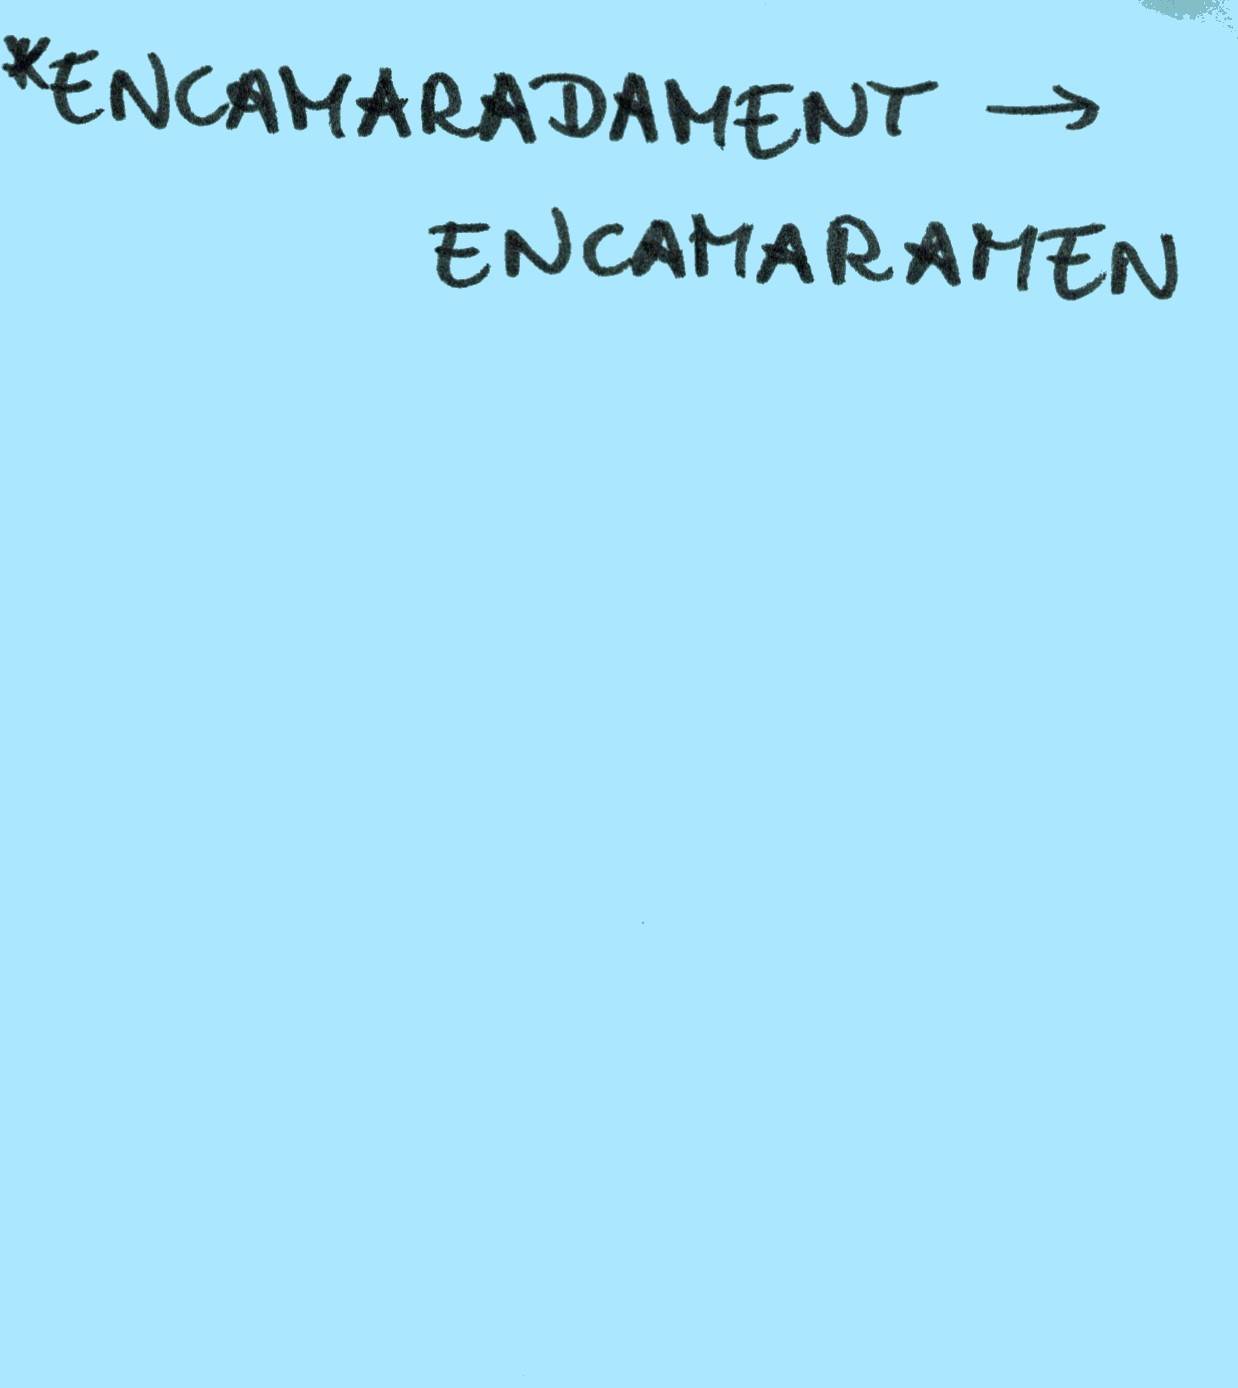 *ENCAMARADAMENT →
ENCAMARAMEN